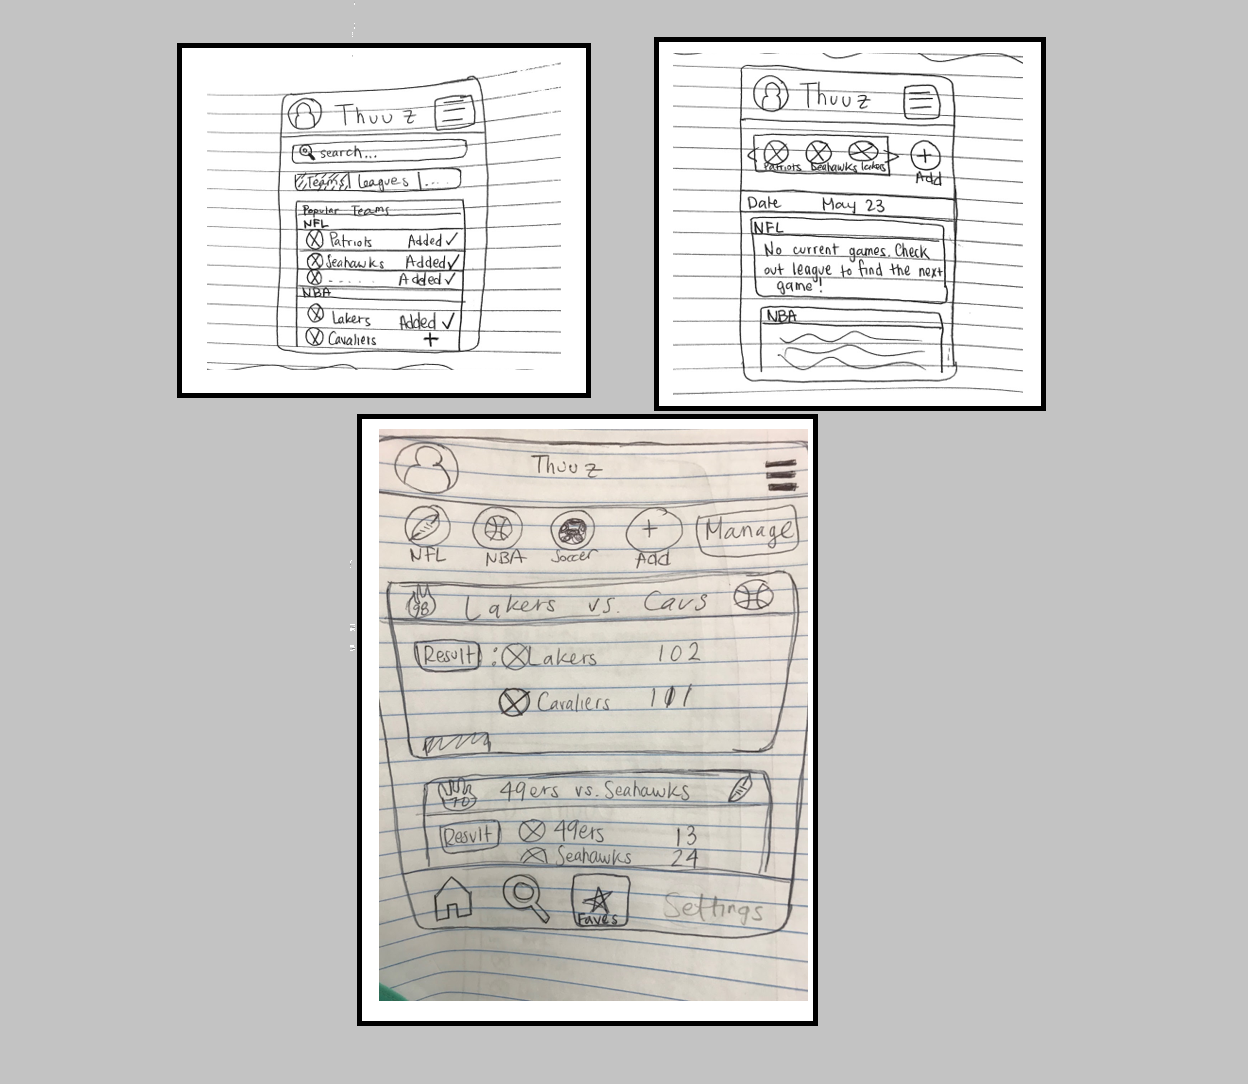 Thuuz
search...
Teams Leagues ....
Popular Teams
NFL
Patriots Added ✓
Seahawks Added ✓
..... Added ✓
NBA
Lakers Added ✓
Cavaliers +
Thuuz
< Patriots Seahawks Lakers > +
Add
Date May 23
NFL
No current games. Check
out league to find the next
game!
NBA
Thuuz
NFL NBA Soccer + Add Manage
98 Lakers vs. Cavs
Result : Lakers 102
Cavaliers 101
70 49ers vs. Seahawks
Result 49ers 13
Seahawks 24
Faves Settings